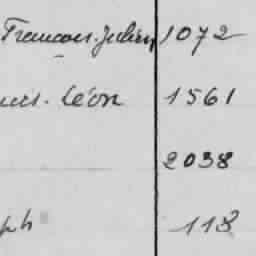 François-Julien 1072
Léon 1561
2038
ph 113